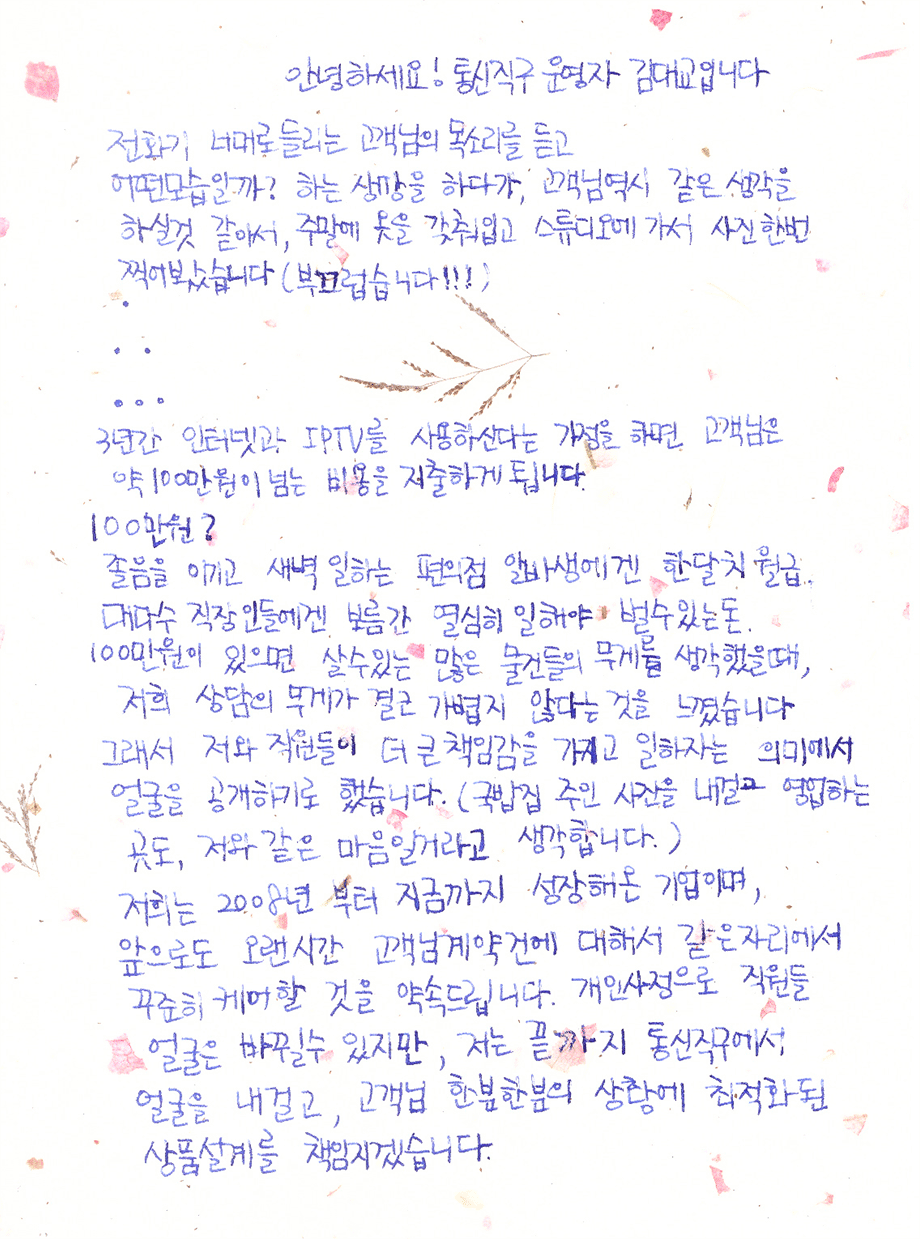 안녕하세요! 통신직구 운영자 김대교입니다
전화기 너머로 들리는 고객님의 목소리를 듣고
어떤모습일까? 하는 상상을 하다가, 고객님역시 같은 생각을
하실것 같아서, 주말에 옷을 갖춰입고 스튜디오에 가서 사진한번
찍어보았습니다 (부끄럽습니다!!!)
.
. .
...
3년간 인터넷과 IPTV를 사용하신다는 가정을 하면 고객님은
약 100만원이 넘는 비용을 지출하게 됩니다.
100만원?
졸음을 이기고 새벽 일하는 편의점 알바생에겐 한달치 월급.
대다수 직장인들에겐 보름간 열심히 일해야 벌수있는돈.
100만원이 있으면 살수있는 많은 물건들의 무게를 생각했을때,
저희 상담의 무게가 결코 가볍지 않다는 것을 느꼈습니다
그래서 저와 직원들이 더 큰 책임감을 가지고 일하자는 의미에서
얼굴을 공개하기로 했습니다. (국밥집 주인 사진을 내걸고 영업하는
곳도, 저와 같은 마음일거라고 생각합니다.)
저희는 2008년 부터 지금까지 성장해온 기업이며,
앞으로도 오랜시간 고객님계약건에 대해서 같은자리에서
꾸준히 케어할 것을 약속드립니다. 개인사정으로 직원들
얼굴은 바뀔수 있지만, 저는 끝까지 통신직구에서
얼굴을 내걸고, 고객님 한분한분의 상황에 최적화된
상품설계를 책임지겠습니다.